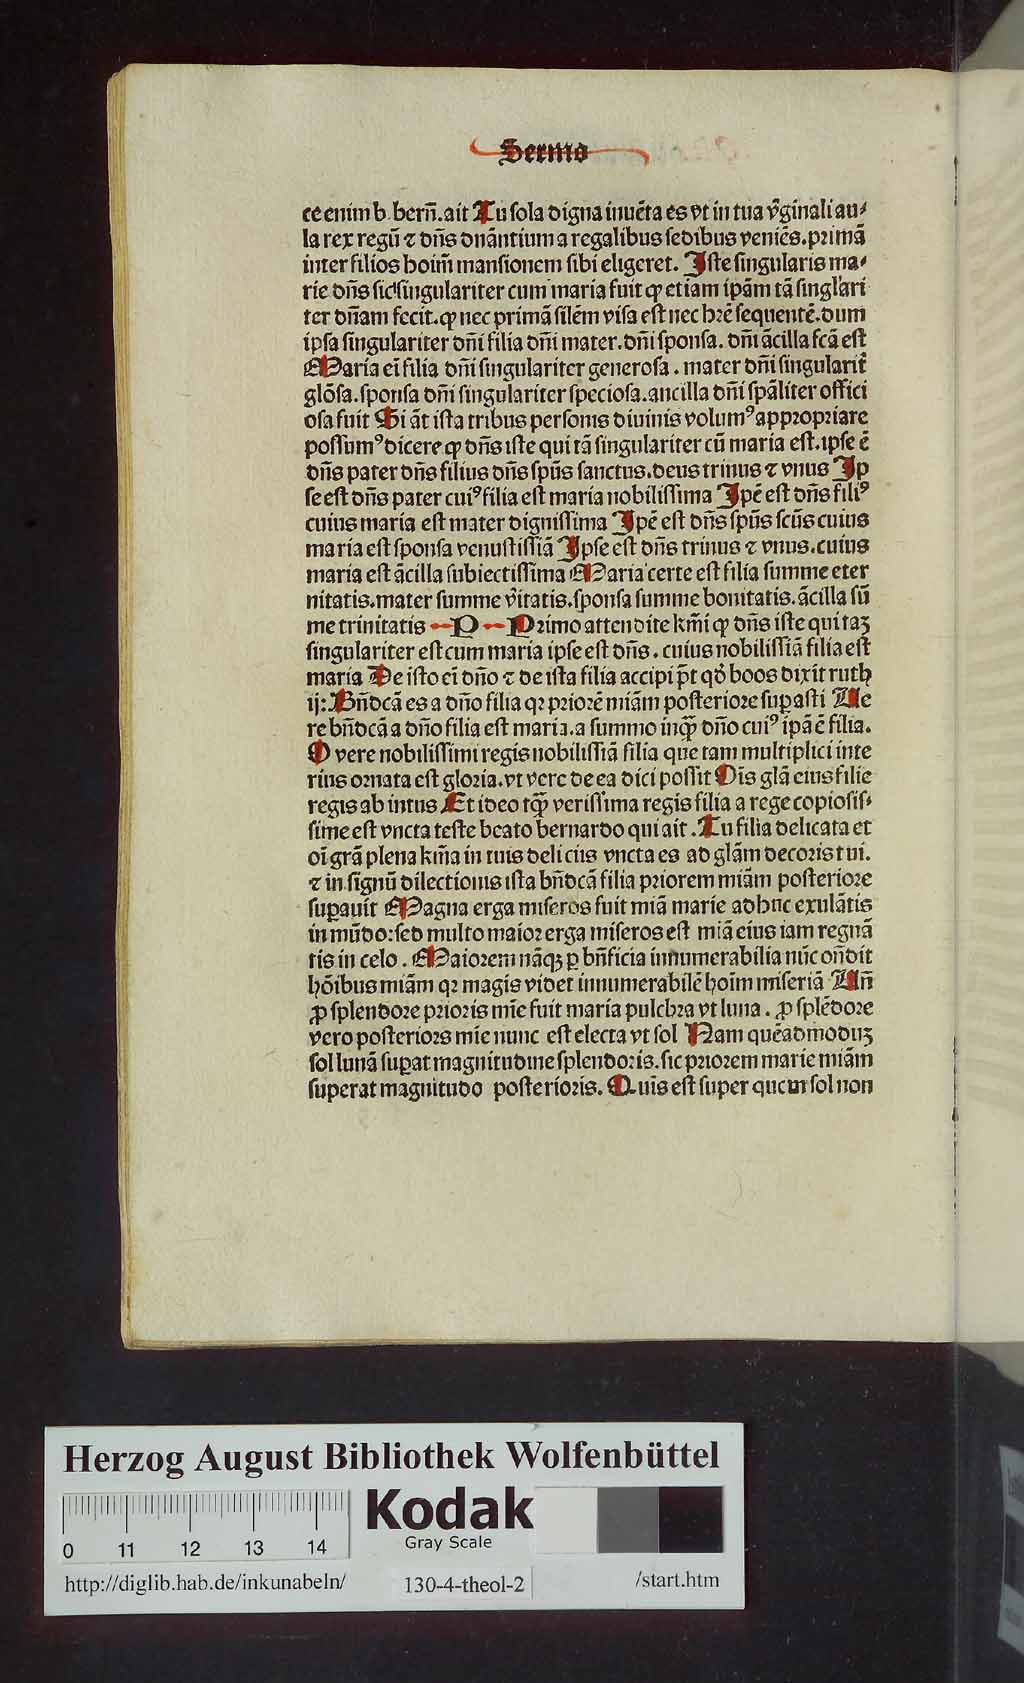 Sermo
ce enim b. berñ. ait Tu sola digna inuēta es vt in tua v̄ginali au⸗
la rex regū ⁊ dñs dnāntium a regalibus sedibus veniēs. primā
inter filios hoim̄ mansionem sibi eligeret. Iste singularis ma⸗
rie dñs sic singulariter cum maria fuit ꝙ etiam ipām tā singl'ari
ter dn̄am fecit. ꝙ nec primā silēm visa est nec hr̄e sequentē. dum
ipsa singulariter dn̄i filia dn̄i mater. dn̄i sponsa. dn̄i ācilla fcā est
Maria ei filia dn̄i singulariter generosa. mater dn̄i singularit̄
glōsa. sponsa dn̄i singulariter speciosa. ancilla dn̄i spāliter offici
osa fuit Si āt ista tribus personis diuinis volumꝰ appropriare
possumꝰ dicere ꝙ dñs iste qui tā singulariter cū maria est. ipse ē
dñs pater dñs filius dñs spūs sanctus. deus trinus ⁊ vnus Ip
se est dñs pater cuiꝰ filia est maria nobilissima Ipē est dñs filiꝰ
cuius maria est mater dignissima Ipē est dñs spūs scūs cuius
maria est sponsa venustissiā Ipse est dñs trinus ⁊ vnus. cuius
maria est ācilla subiectissima Maria certe est filia summe eter
nitatis. mater summe v̄itatis. sponsa summe bonitatis. ācilla sū
me trinitatis P Primo attendite km̄i ꝙ dñs iste qui taꝫ
singulariter est cum maria ipse est dñs. cuius nobilissiā filia est
maria De isto ei dño ⁊ de ista filia accipi p̄t qḋ boos dixit ruth
ij: Bn̄dcā es a dño filia qꝛ priorē miām posteriore suꝑasti Ue
re bn̄dcā a dño filia est maria. a summo inꝙ̄ dño cuiꝰ ipā ē filia.
O vere nobilissimi regis nobilissiā filia que tam multiplici inte
rius ornata est gloria. vt vere de ea dici possit Ois glā eius filie
regis ab intus Et ideo tꝙ̄ verissima regis filia a rege copiosis⸗
sime est vncta teste beato bernardo qui ait. Tu filia delicata et
oī grā plena km̄a in tuis delicijs vncta es ad glām decoris tui.
⁊ in signū dilectionis ista bn̄dcā filia priorem miām posteriore
suꝑauit Magna erga miseros fuit miā marie adhuc exulātis
in mūdo: sed multo maior erga miseros est miā eius iam regnā
tis in celo. Maiorem nāqꝫ ꝑ bn̄ficia innumerabilia nūc on̄dit
hōibus miām qꝛ magis videt innumerabilē hoim miseriā Un̄
ꝓ splendore prioris mīe fuit maria pulchra vt luna. ꝓ splēdore
vero posteriors mīe nunc est electa vt sol Nam quēadmoduꝫ
sol lunā suꝑat magnitudine splendoris. sic priorem marie miām
superat magnitudo posterioris. Quis est super quem sol non
Herzog August Bibliothek Wolfenbüttel
0 11 12 13 14
Kodak
Gray Scale
http://diglib.hab.de/inkunabeln/
130-4-theol-2
/start.htm